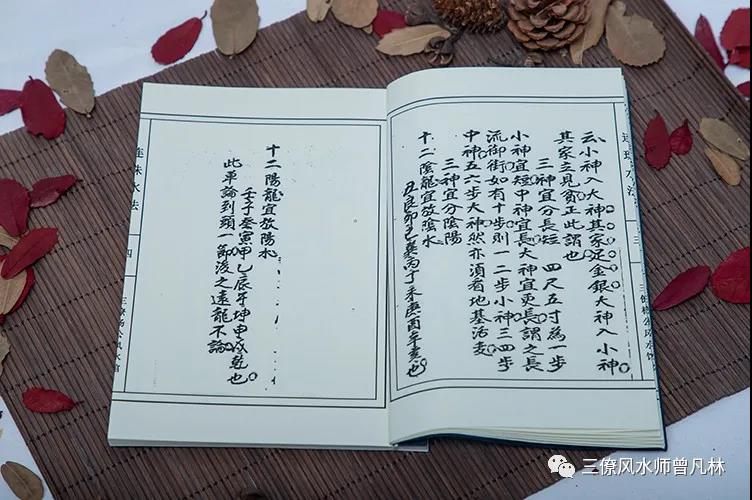 連珠水法
三
云小神入大神其家足金銀大神入小神
其家立見貧正此謂也
三神宜分長短 四尺五寸為一步
小神宜短中神宜長大神宜更長謂之長
流御街如有十步則一二步小神三四步
中神五六步大神然亦須看地基活变
三神宜分陰陽
十二陰龍宜放陰水
丑艮卯巳巽丙丁未庚酉辛亥也
十二陽龍宜放陽水
壬子癸寅甲乙辰午坤申戌乾也
此單論到頭一節後之遠龍不論
連珠水法
四
三僚楊公風水館
三僚风水师曾凡林